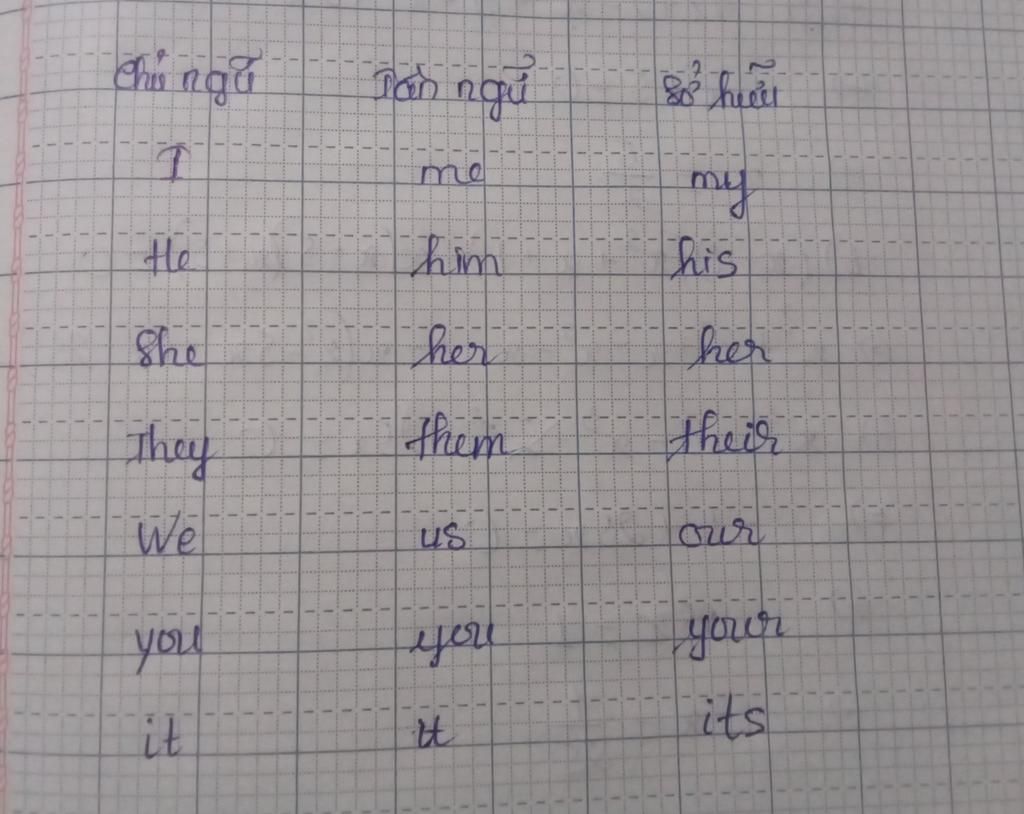 Chủ ngữ Tân ngữ Sở hữu
I me my
He him his
She her her
They them their
We us our
you you your
it it its